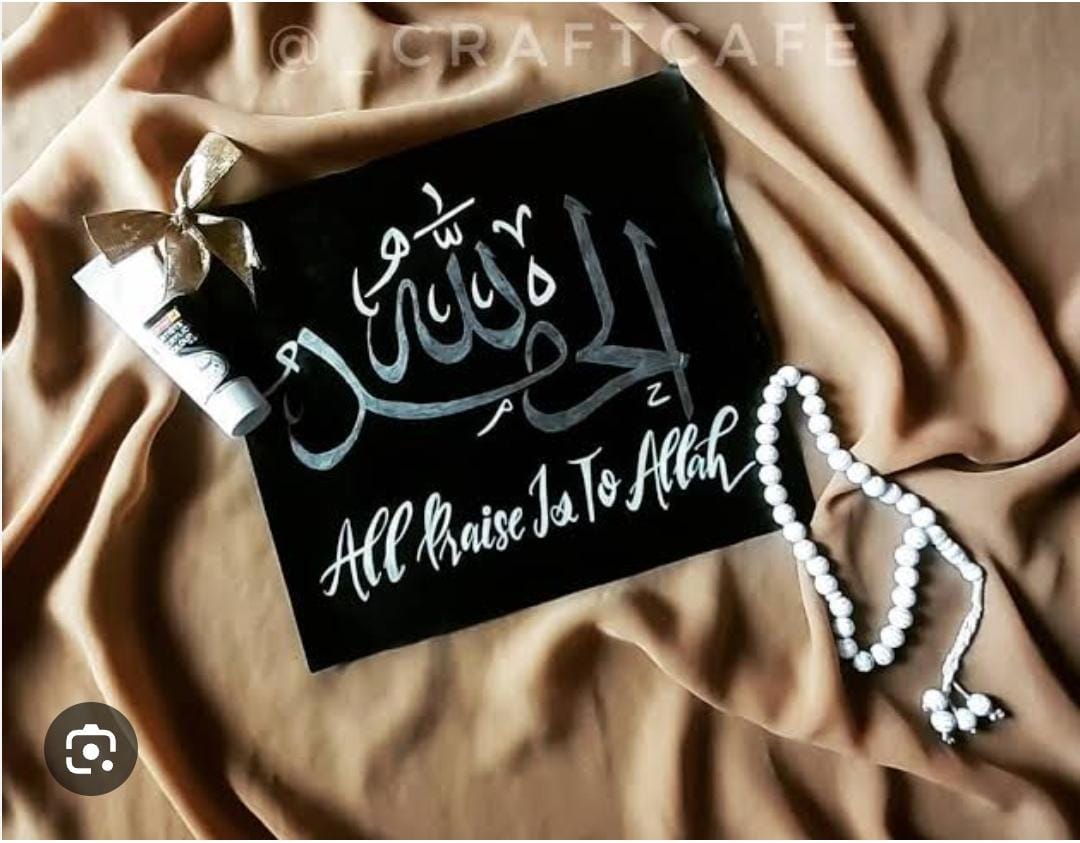 @_CRAFTCAFE
الحمد لله
All Praise Is To Allah